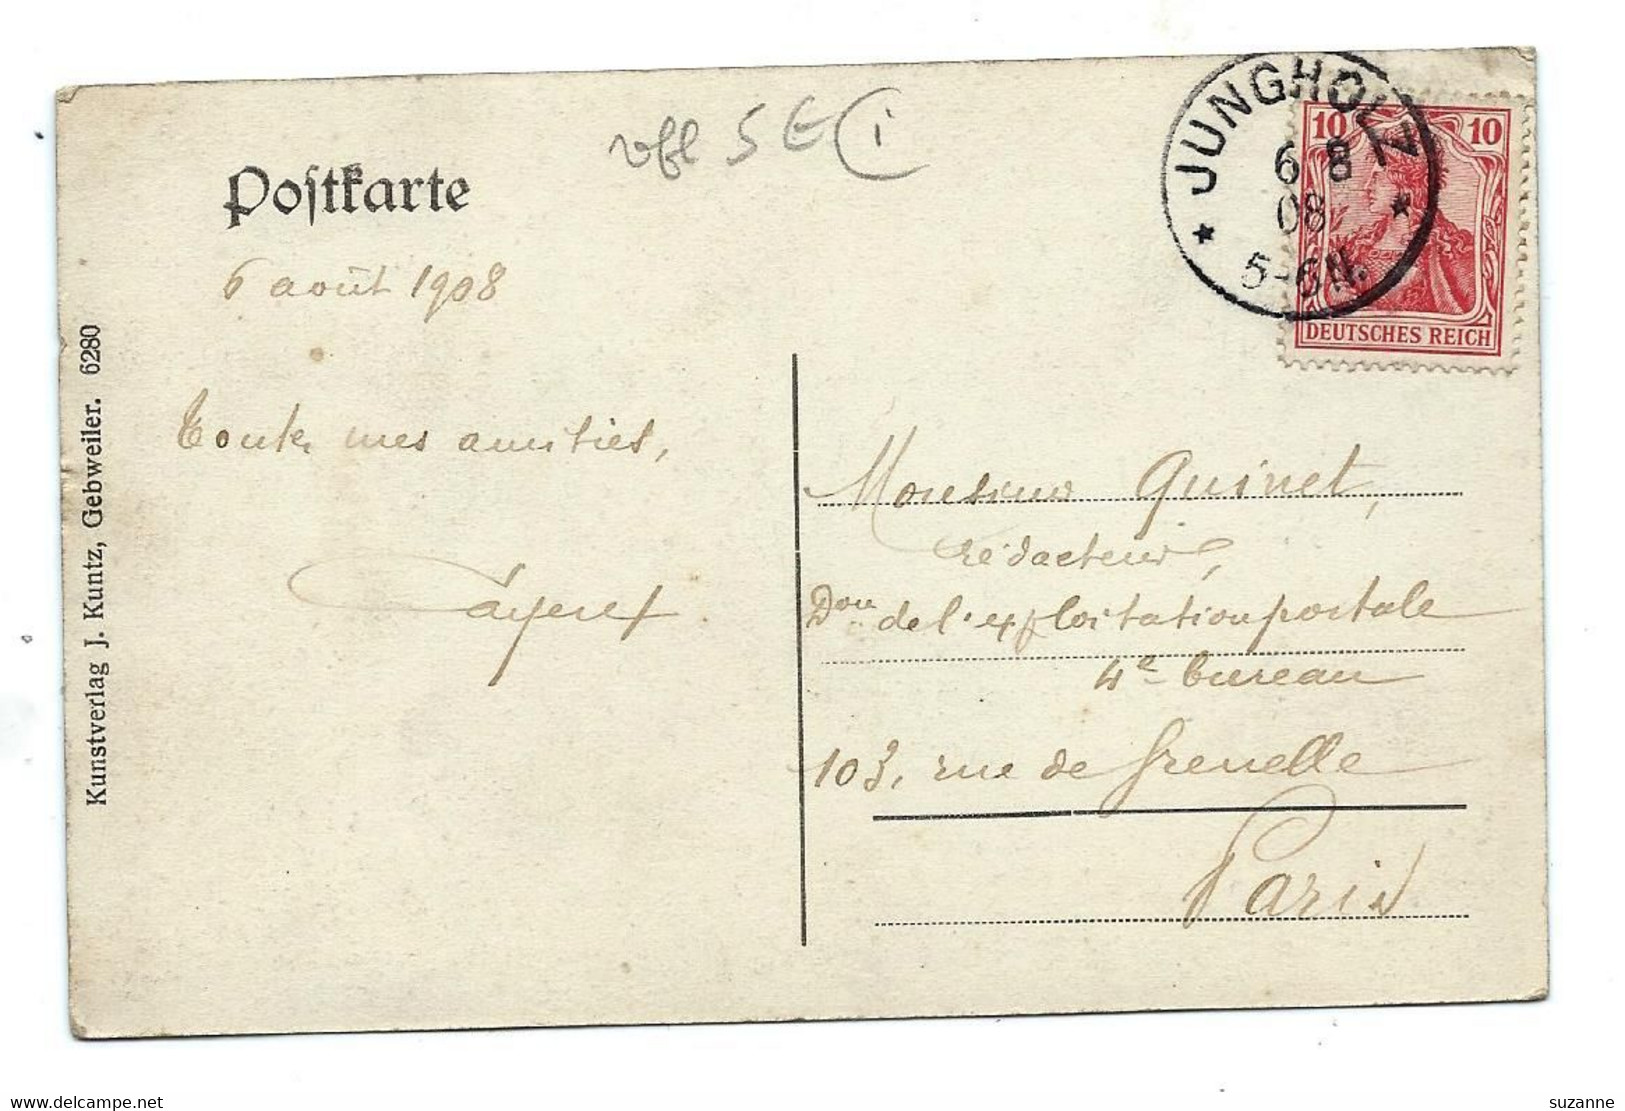 JUNGHOLZ
6 8
08
5-6N.
10 10
DEUTSCHES REICH
5 € 1
Postkarte
6 août 1908
Toutes mes amitiés,
Kunstverlag J. Kuntz, Gebweiler. 6280
Monsieur Quinet,
rédacteur,
Don de l'exploitation postale
4e bureau
103, rue de Grenelle
Paris
delcampe.net
suzanne